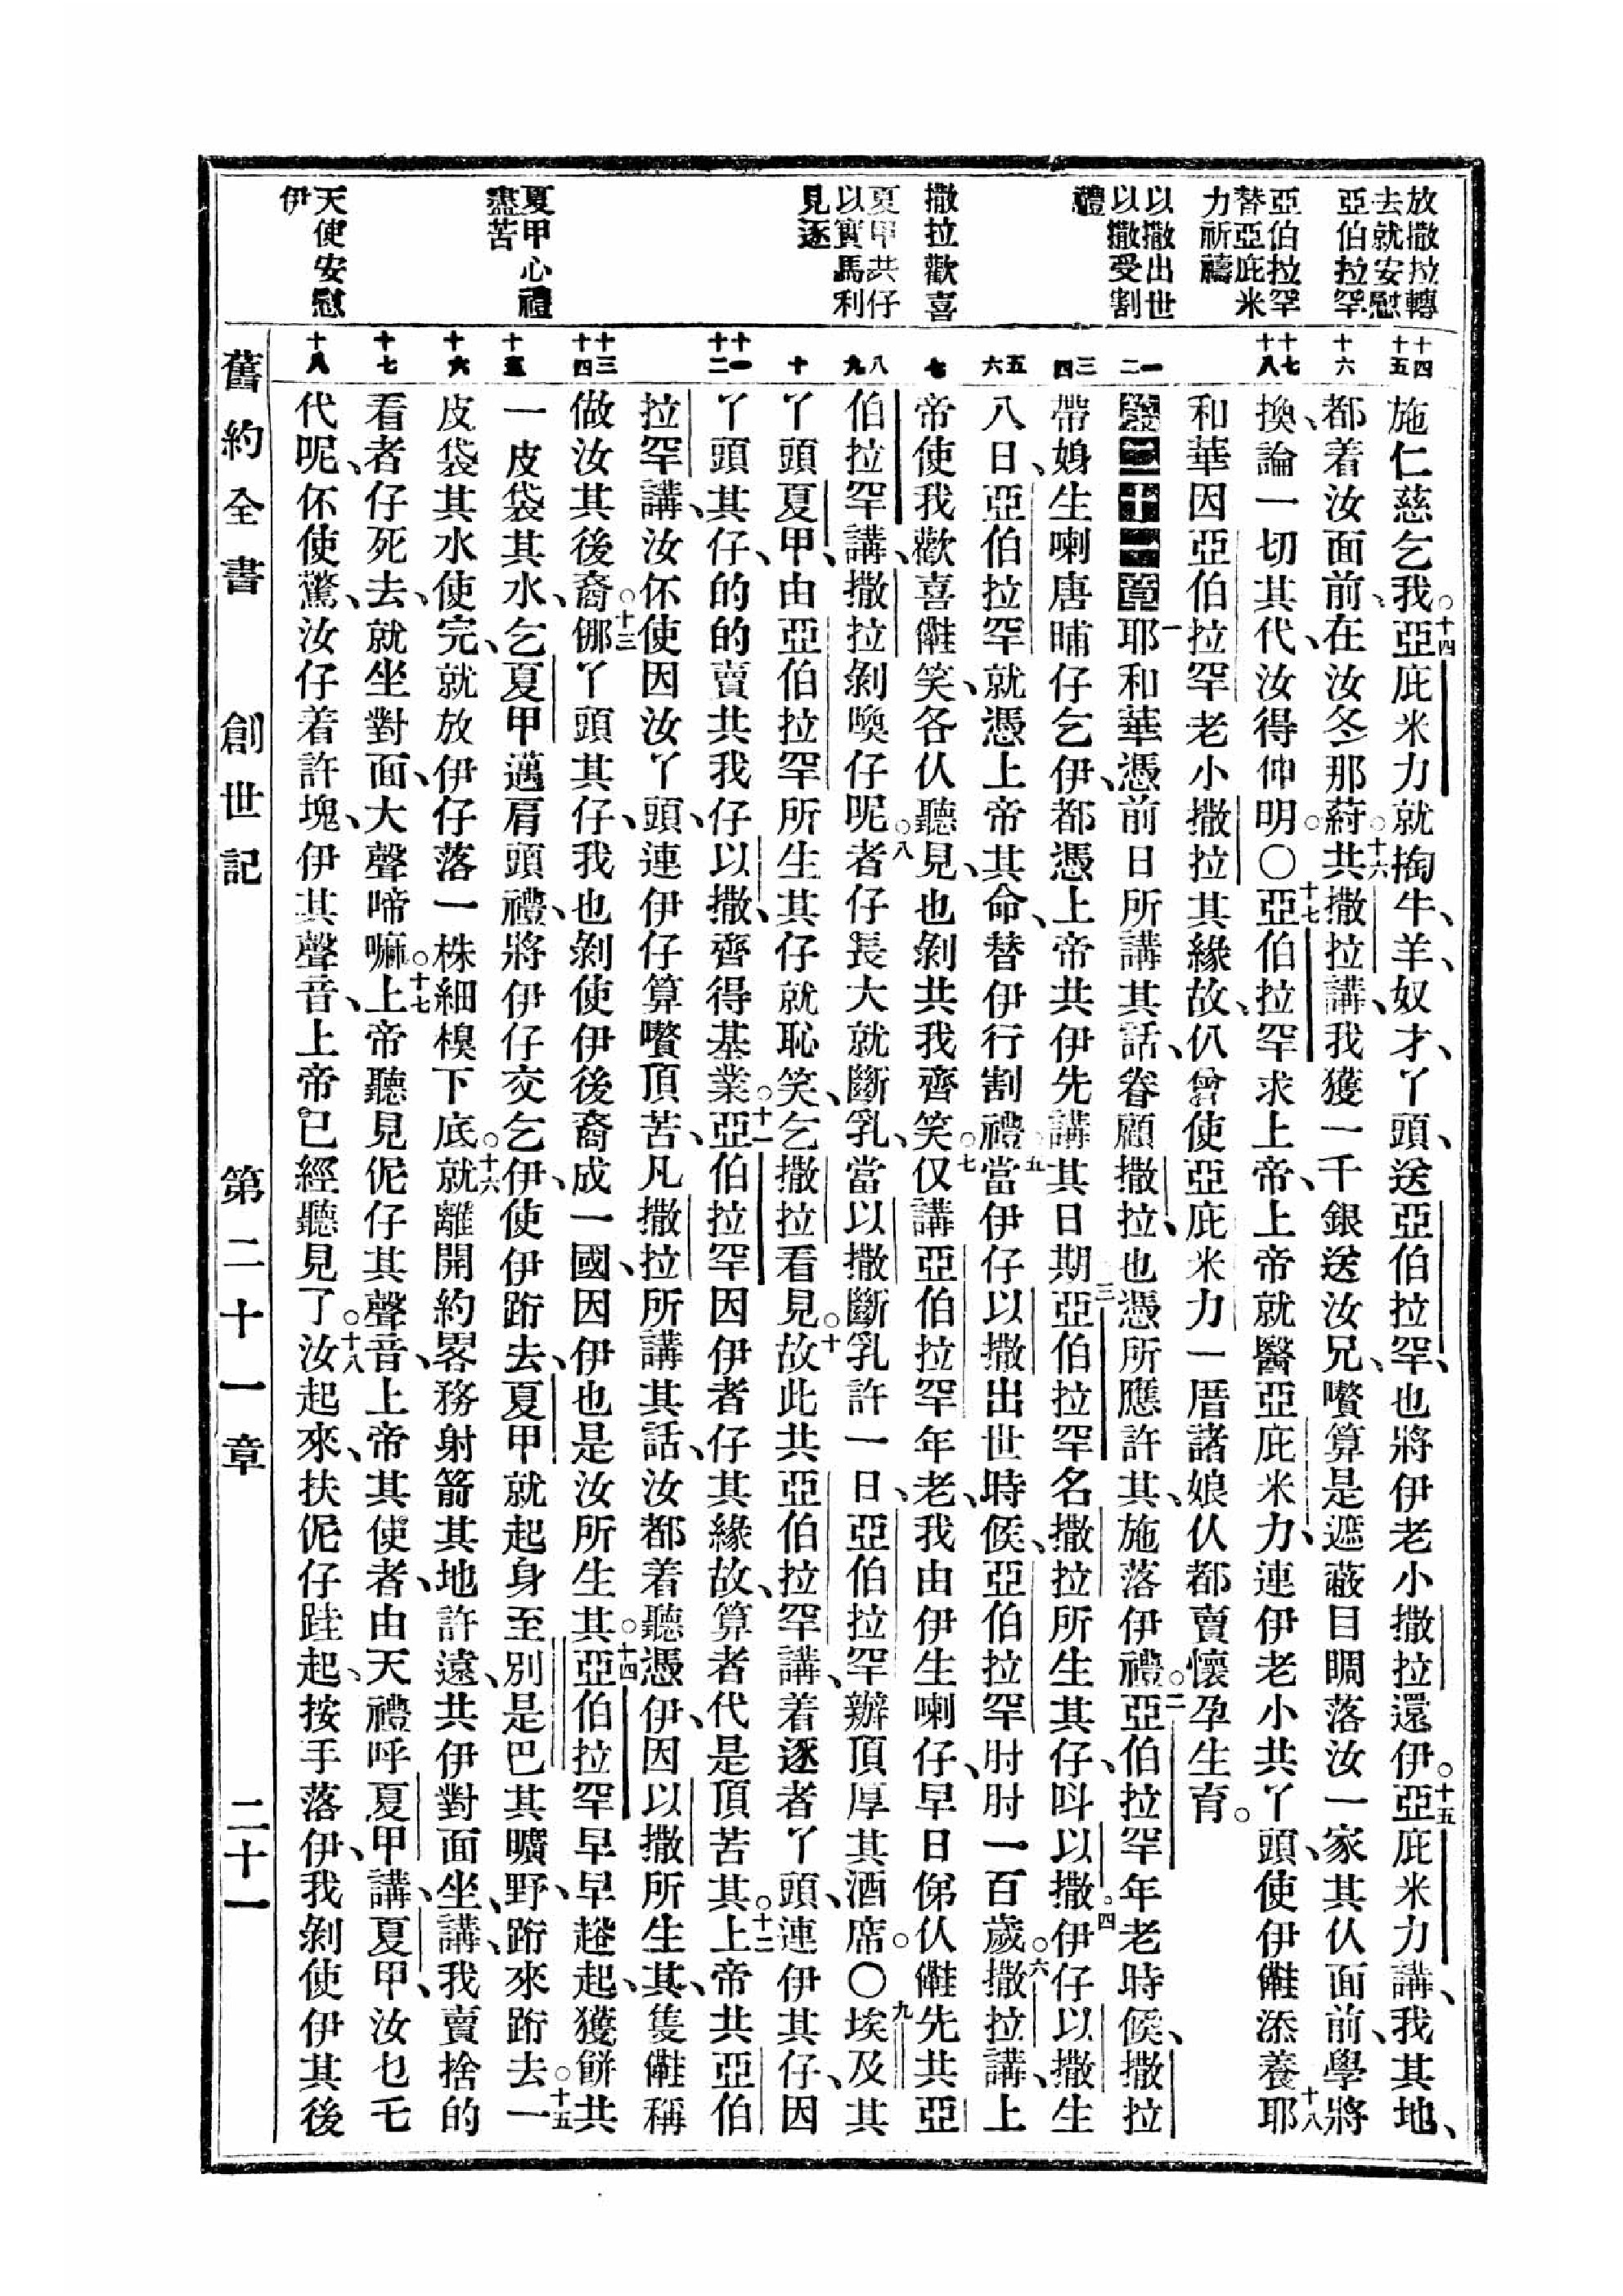 放撒拉轉
去就安慰
亞伯拉罕
亞伯拉罕
替亞庇米
力祈禱
以撒出世
以撒受割
禮
撒拉歡喜
夏甲共仔
以實馬利
見逐
夏甲心禮
盡苦
天使安慰
伊
十四
十五
十六
十七
十八
一
二
三
四
五
六
七
八
九
十
十一
十二
十三
十四
十五
十六
十七
十八
施仁慈乞我。十四亞庇米力就掏牛、羊、奴才、丫頭、送亞伯拉罕、也將伊老小撒拉還伊。十五亞庇米力講、我其地、
都着汝面前、在汝冬那蒔。十六共撒拉講、我獲一千銀送汝兄、囋算是遮蔽目睭落汝一家其伙面前、學將
換論一切其代、汝得伸明。〇十七亞伯拉罕求上帝、上帝就醫亞庇米力、連伊老小共丫頭、使伊㒕添養十八耶
和華因亞伯拉罕老小撒拉其緣故、仈曾使亞庇米力一厝諸娘仈都賣懷孕生育。
第二十一章一耶和華憑前日所講其話、眷顧撒拉、也憑所應許其、施落伊禮。二亞伯拉罕年老時候、撒拉
帶娒生喇唐晡仔乞伊、都憑上帝共伊先講其日期三亞伯拉罕名撒拉所生其仔、呌以撒。四伊仔以撒生
八日、亞伯拉罕就憑上帝其命、替伊行割禮。五當伊仔以撒出世時候、亞伯拉罕肘肘一百歲。六撒拉講、上
帝使我歡喜㒕笑、各仈聽見、也剝共我齊笑。七仅講亞伯拉罕年老、我由伊生喇仔、早日俤仈㒕先共亞
伯拉罕講、撒拉剝喚仔呢。八者仔長大就斷乳、當以撒斷乳許一日、亞伯拉罕辦頂厚其酒席。〇九埃及其
丫頭夏甲、由亞伯拉罕所生其仔就恥笑、乞撒拉看見。十故此共亞伯拉罕講、着逐者丫頭、連伊其仔、因
丫頭其仔、的的賣共我仔以撒、齊得基業。十一亞伯拉罕因伊者仔其緣故、算者代是頂苦其。十二上帝共亞伯
拉罕講、汝伓使因汝丫頭、連伊仔算囋頂苦、凡撒拉所講其話、汝都着聽憑伊、因以撒所生其、隻㒕稱
做汝其後裔。十三㑚丫頭其仔、我也剝使伊後裔成一國、因伊也是汝所生其。十四亞伯拉罕早早趖起、獲餅共
一皮袋其水、乞夏甲邁肩頭禮、將伊仔交乞伊、使伊跔去、夏甲就起身至別是巴其曠野、跔來跔去。十五一
皮袋其水使完、就放伊仔落一株細模下底。十六就離開約畧務射箭其地許遠、共伊對面坐、講、我賣捨的
看者仔死去、就坐對面、大聲啼嘛。十七上帝聽見伲仔其聲音、上帝其使者、由天禮呼夏甲講、夏甲、汝乜乇
代呢、伓使驚、汝仔着許塊、伊其聲音、上帝已經聽見了。十八汝起來、扶伲仔跬起、按手落伊、我剝使伊其後
舊約全書　創世記　第二十一章　二十一